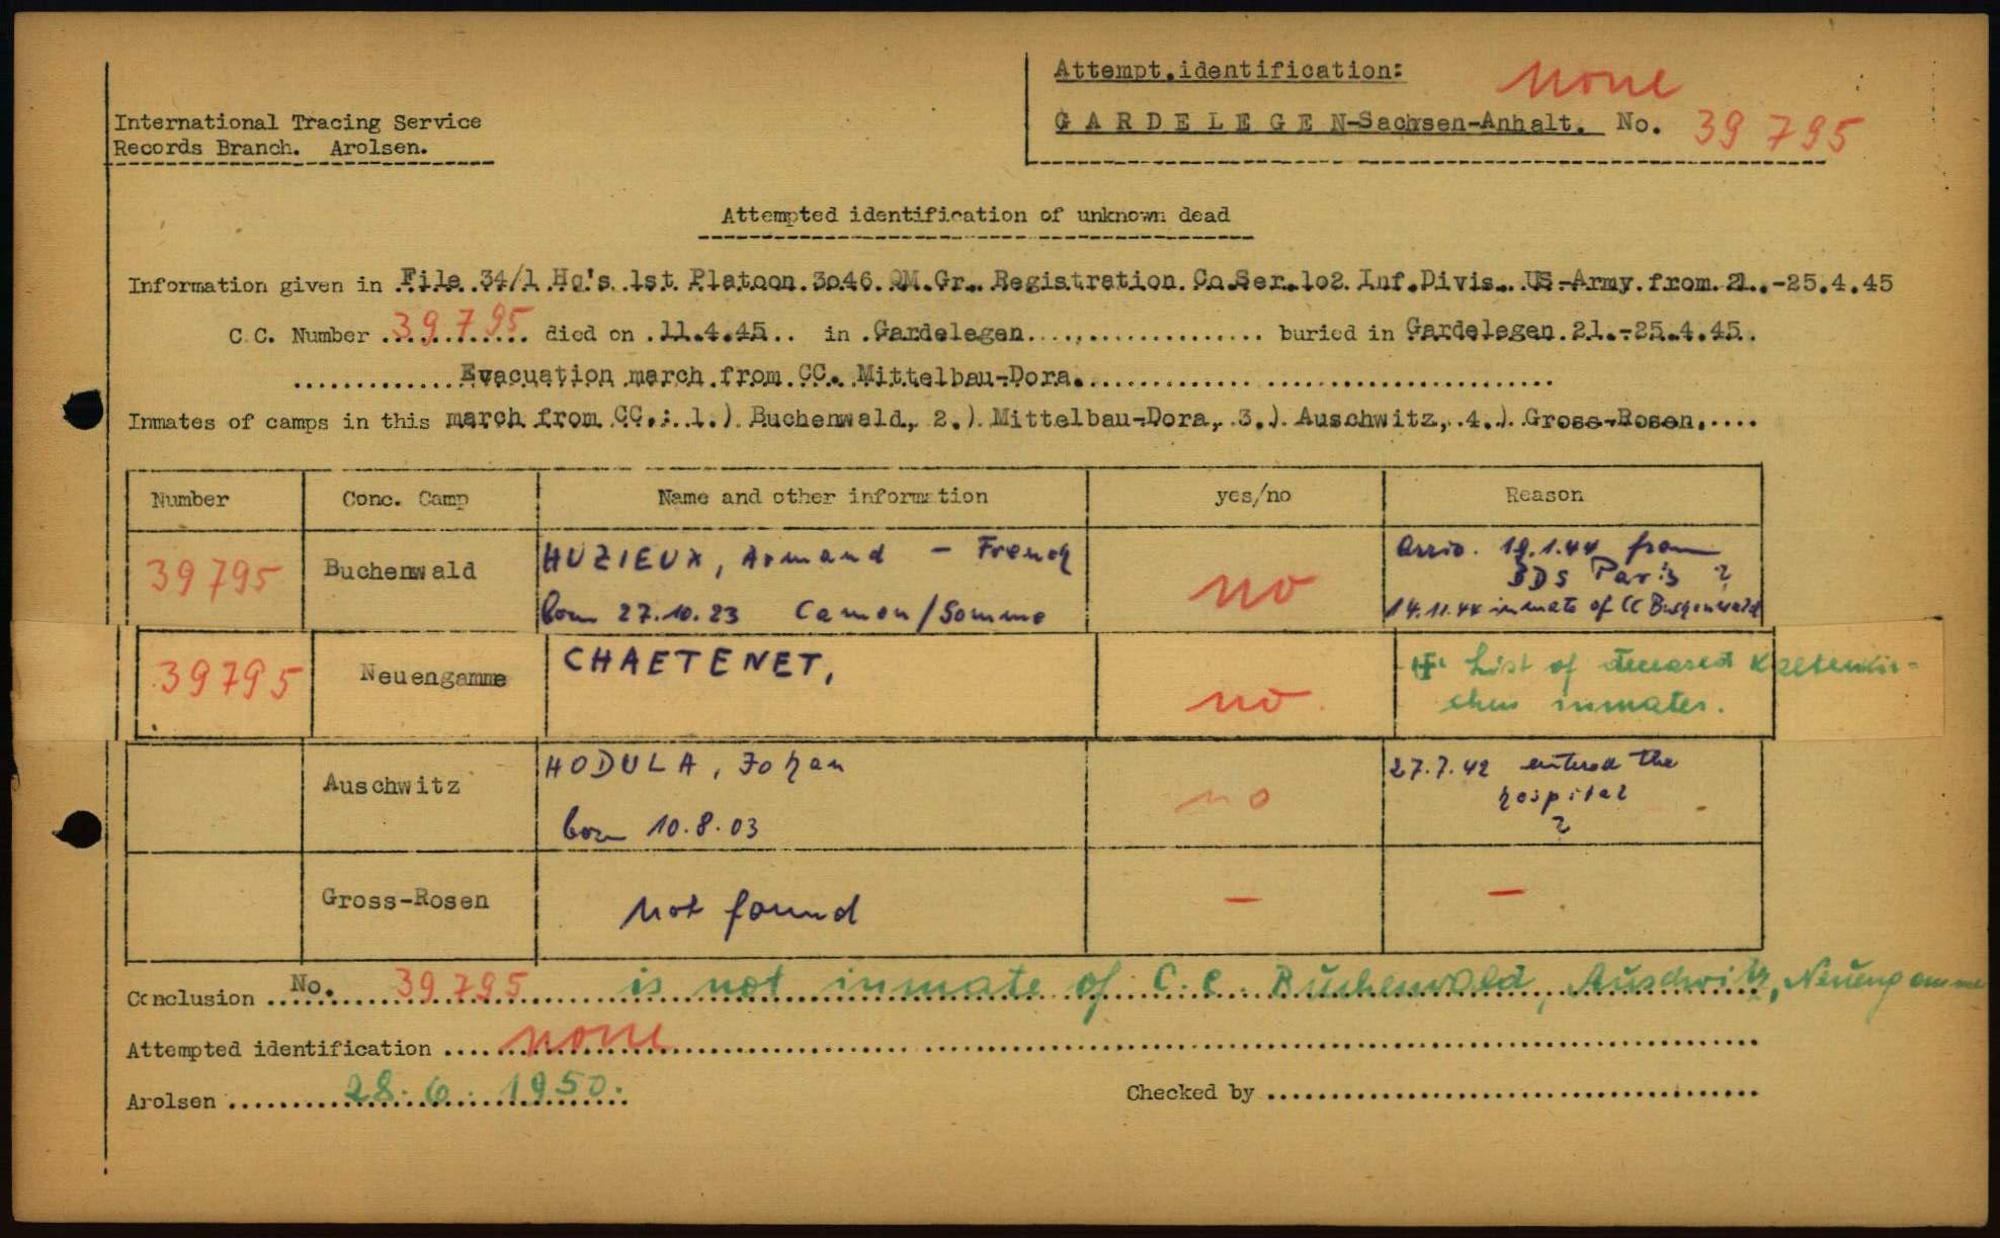 Attempt.identification: none
GARDELEGEN-Sachsen-Anhalt. No. 39 795
International Tracing Service
Records Branch. Arolsen.
Attempted identification of unknown dead
Information given in File 34/1 Hq's 1st Platoon 3o46 QM.Gr. Registration Co.Ser.1o2 Inf.Divis. US-Army from 21.-25.4.45
C.C. Number 39795 died on 11.4.45 in Gardelegen buried in Gardelegen 21.-25.4.45.
Evacuation march from CC. Mittelbau-Dora.
Inmates of camps in this march from CC.: 1.) Buchenwald, 2.) Mittelbau-Dora, 3.) Auschwitz, 4.) Gross-Rosen.
Number Conc. Camp Name and other information yes/no Reason
39795 Buchenwald HUZIEUX, Armand - French no Arriv. 19.1.44 from
BDS Paris ?
born 27.10.23 Camon/Somme 14.11.44 inmate of CC Buchenwald
39795 Neuengamme CHAETENET, no List of deceased
inmates.
Auschwitz HODULA, Johan no 27.7.42 entered the
hospital
born 10.8.03 ?
Gross-Rosen not found - -
Conclusion No. 39795 is not inmate of C.C. Buchenwald, Auschwitz, Neuengamme
Attempted identification none
Arolsen 28.6.1950. Checked by